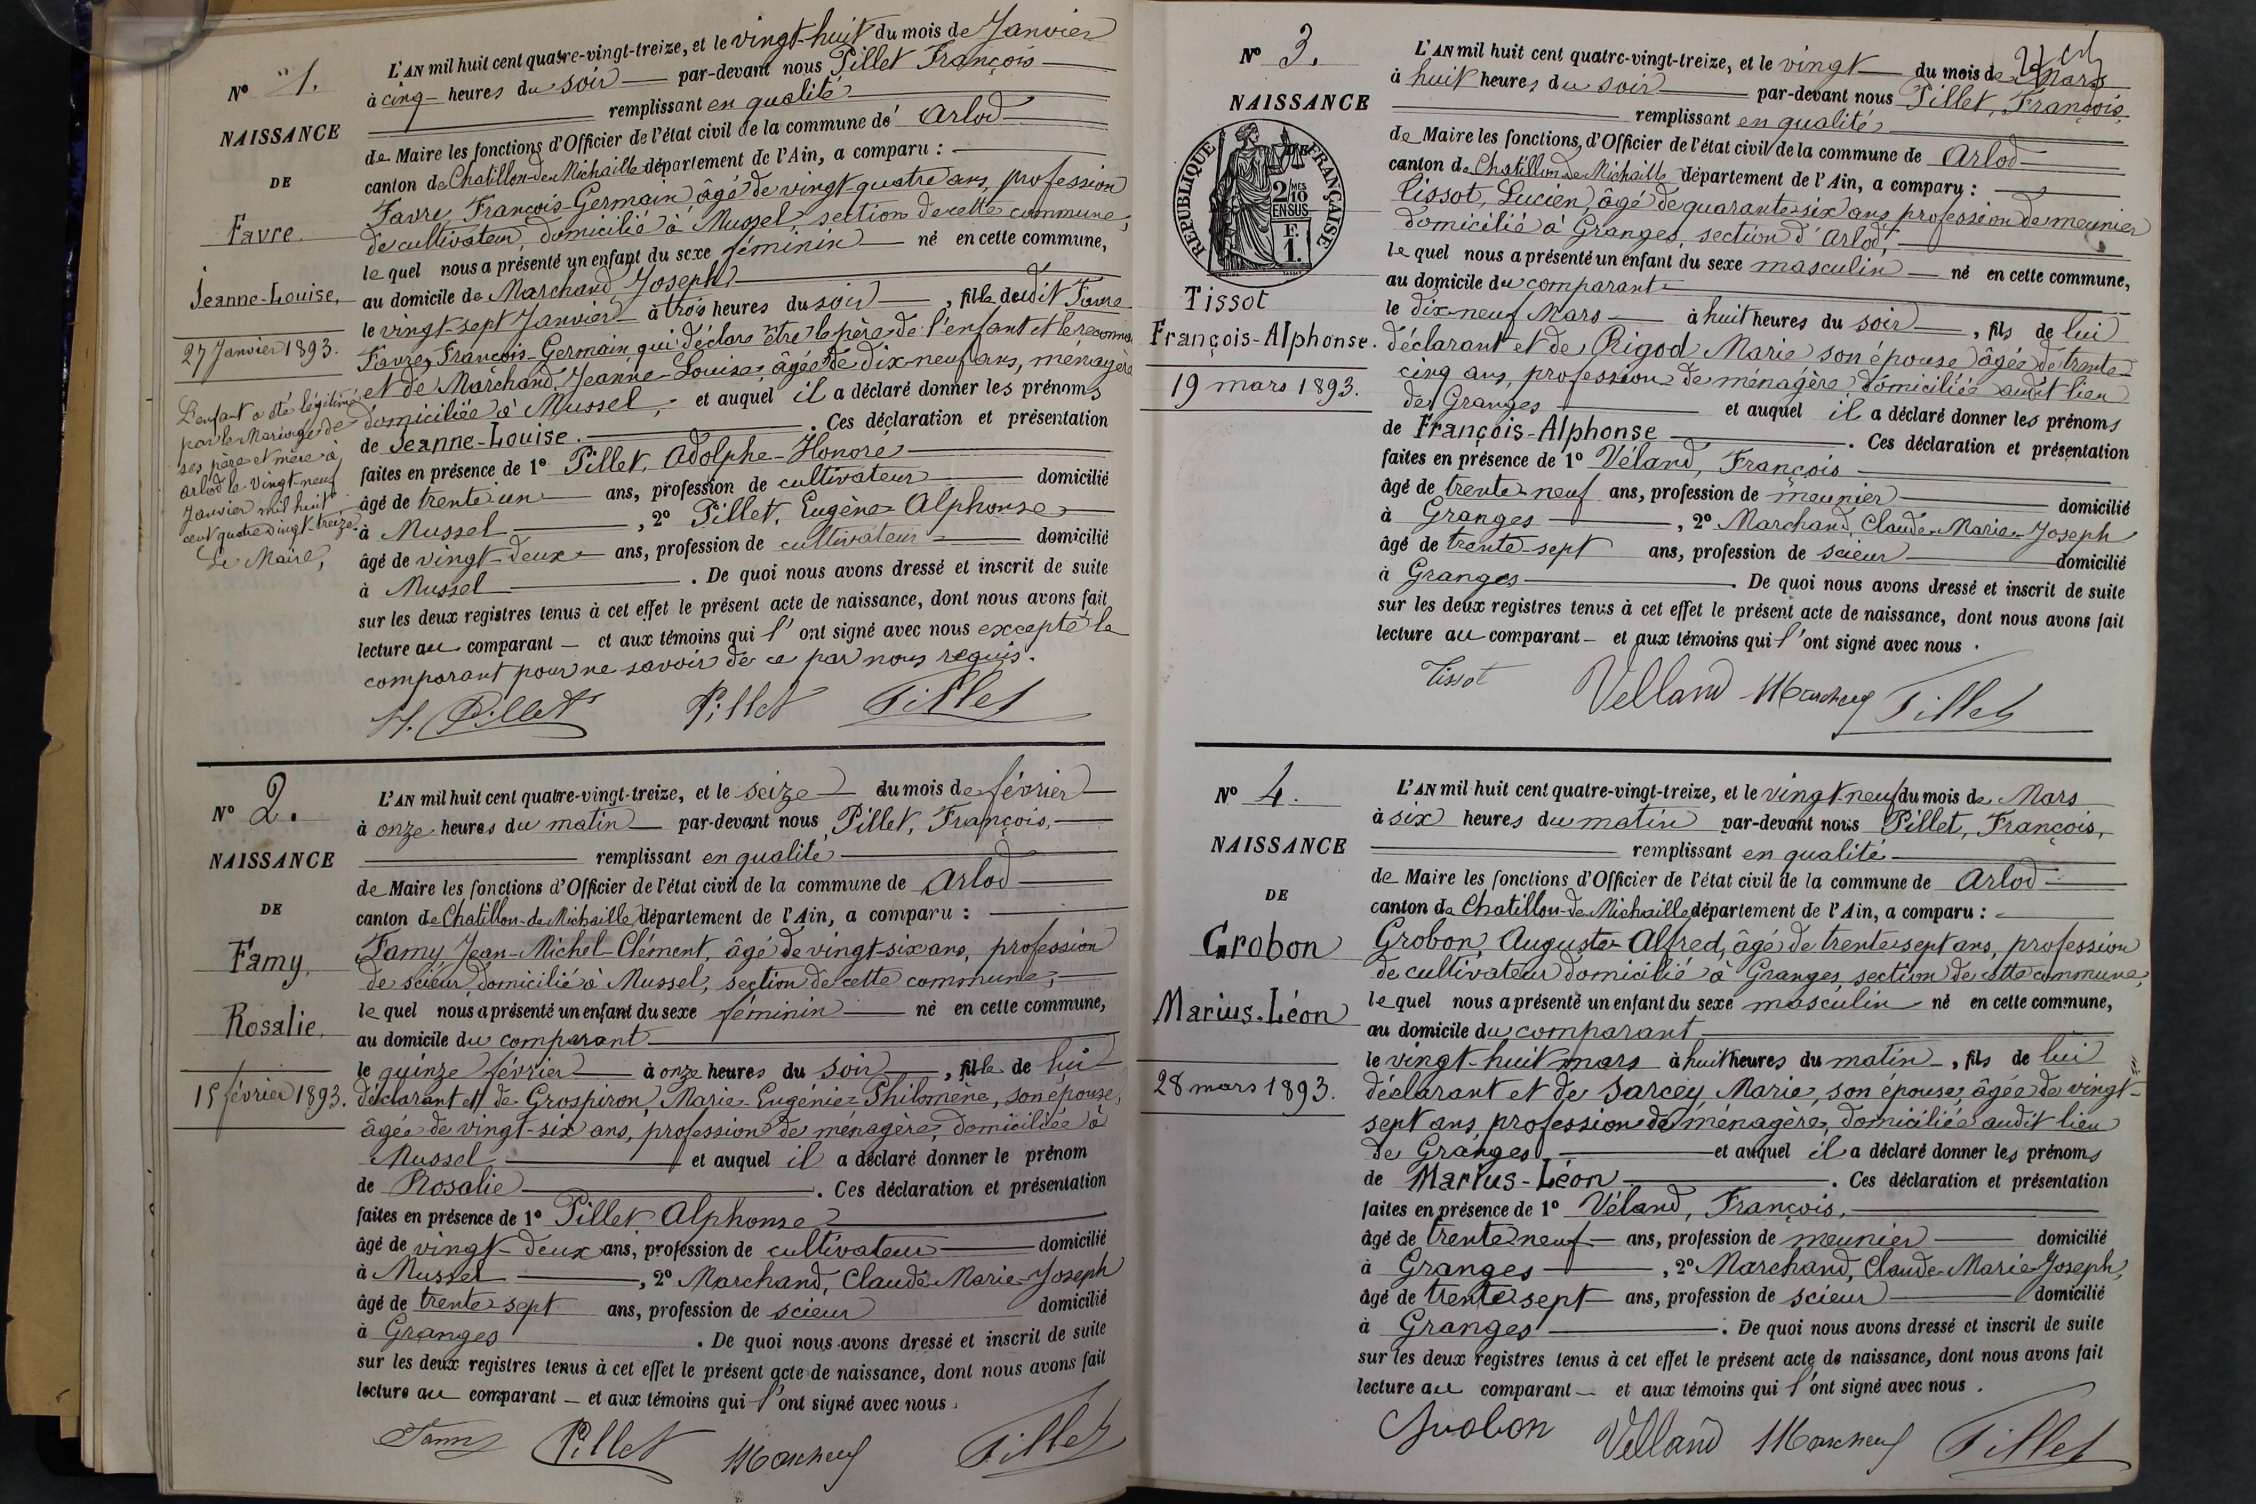 N° 1.
NAISSANCE
DE
Favre
Jeanne-Louise,
27 Janvier 1893.
L'enfant a été légitimé
par le Mariage de
ses père et mère à
Arlod le vingt-neuf
Janvier mil huit
cent quatre vingt-treize.
Le Maire,
L'AN mil huit cent quatre-vingt-treize, et le vingt-huit du mois de Janvier
à cinq heures du soir par-devant nous Pillet François
remplissant en qualité
de Maire les fonctions d'Officier de l'état civil de la commune de Arlod
canton de Chatillon-de-Michaille département de l'Ain, a comparu :
Favre, François-Germain âgé de vingt-quatre ans, profession
de cultivateur, domicilié à Mussel section de cette commune,
lequel nous a présenté un enfant du sexe féminin né en cette commune,
au domicile de Marchand Joseph
le vingt-sept Janvier à trois heures du soir, fille dudit Favre
Favre, François-Germain qui déclare être le père de l'enfant et le reconnaî
et de Marchand, Jeanne-Louise, âgée de dix-neuf ans, ménagère
domiciliée à Mussel, et auquel il a déclaré donner les prénoms
de Jeanne-Louise. Ces déclaration et présentation
faites en présence de 1° Pillet, Adolphe-Honoré
âgé de trente un ans, profession de cultivateur domicilié
à Mussel, 2° Pillet, Eugène Alphonse
âgé de vingt-deux ans, profession de cultivateur domicilié
à Mussel. De quoi nous avons dressé et inscrit de suite
sur les deux registres tenus à cet effet le présent acte de naissance, dont nous avons fait
lecture au comparant et aux témoins qui l'ont signé avec nous excepté le
comparant pour ne savoir de ce par nous requis.
H. Pillet Pillet Pillet
N° 2.
NAISSANCE
DE
Famy,
Rosalie.
15 février 1893.
L'AN mil huit cent quatre-vingt-treize, et le seize du mois de février
à onze heures du matin par-devant nous Pillet, François,
remplissant en qualité
de Maire les fonctions d'Officier de l'état civil de la commune de Arlod
canton de Chatillon-de-Michaille département de l'Ain, a comparu :
Famy Jean-Michel-Clément, âgé de vingt-six ans, profession
de scieur, domicilié à Mussel, section de cette commune,
lequel nous a présenté un enfant du sexe féminin né en cette commune,
au domicile du comparant
le quinze février à onze heures du soir, fille de lui
déclarant et de Grospiron, Marie-Eugénie-Philomène, son épouse,
âgée de vingt-six ans, profession de ménagère, domiciliée à
Mussel et auquel il a déclaré donner le prénom
de Rosalie. Ces déclaration et présentation
faites en présence de 1° Pillet Alphonse
âgé de vingt-deux ans, profession de cultivateur domicilié
à Mussel, 2° Marchand, Claude-Marie-Joseph
âgé de trente-sept ans, profession de scieur domicilié
à Granges. De quoi nous avons dressé et inscrit de suite
sur les deux registres tenus à cet effet le présent acte de naissance, dont nous avons fait
lecture au comparant et aux témoins qui l'ont signé avec nous.
Famy Pillet Marchand Pillet
N° 3.
NAISSANCE
DE
RÉPUBLIQUE FRANÇAISE
2 MES
10
EN SUS
F.
1.
Tissot
François-Alphonse.
19 mars 1893.
L'AN mil huit cent quatre-vingt-treize, et le vingt du mois de Mars
à huit heures du soir par-devant nous Pillet, François,
remplissant en qualité
de Maire les fonctions d'Officier de l'état civil de la commune de Arlod
canton de Chatillon de Michaille département de l'Ain, a comparu :
Tissot, Lucien, âgé de quarante-six ans profession de meunier
domicilié à Granges, section d'Arlod,
lequel nous a présenté un enfant du sexe masculin né en cette commune,
au domicile du comparant
le dix-neuf Mars à huit heures du soir, fils de lui
déclarant et de Rigod Marie son épouse âgée de trente-
cinq ans, profession de ménagère domiciliée audit lieu
de Granges et auquel il a déclaré donner les prénoms
de François-Alphonse. Ces déclaration et présentation
faites en présence de 1° Véland, François
âgé de trente-neuf ans, profession de meunier domicilié
à Granges, 2° Marchand, Claude-Marie-Joseph
âgé de trente-sept ans, profession de scieur domicilié
à Granges. De quoi nous avons dressé et inscrit de suite
sur les deux registres tenus à cet effet le présent acte de naissance, dont nous avons fait
lecture au comparant et aux témoins qui l'ont signé avec nous.
Tissot Velland Marchand Pillet
N° 4.
NAISSANCE
DE
Grobon
Marius-Léon
28 mars 1893.
L'AN mil huit cent quatre-vingt-treize, et le vingt neuf du mois de Mars
à six heures du matin par-devant nous Pillet, François,
remplissant en qualité
de Maire les fonctions d'Officier de l'état civil de la commune de Arlod
canton de Chatillon-de-Michaille département de l'Ain, a comparu :
Grobon, Auguste-Alfred, âgé de trente sept ans, profession
de cultivateur domicilié à Granges, section de cette commune,
lequel nous a présenté un enfant du sexe masculin né en cette commune,
au domicile du comparant
le vingt-huit mars à huit heures du matin, fils de lui
déclarant et de Sarcey Marie, son épouse, âgée de vingt-
sept ans, profession de ménagère, domiciliée audit lieu
de Granges et auquel il a déclaré donner les prénoms
de Marius-Léon. Ces déclaration et présentation
faites en présence de 1° Véland, François,
âgé de trente neuf ans, profession de meunier domicilié
à Granges, 2° Marchand, Claude-Marie-Joseph,
âgé de trente sept ans, profession de scieur domicilié
à Granges. De quoi nous avons dressé et inscrit de suite
sur les deux registres tenus à cet effet le présent acte de naissance, dont nous avons fait
lecture au comparant et aux témoins qui l'ont signé avec nous.
Grobon Velland Marchand Pillet